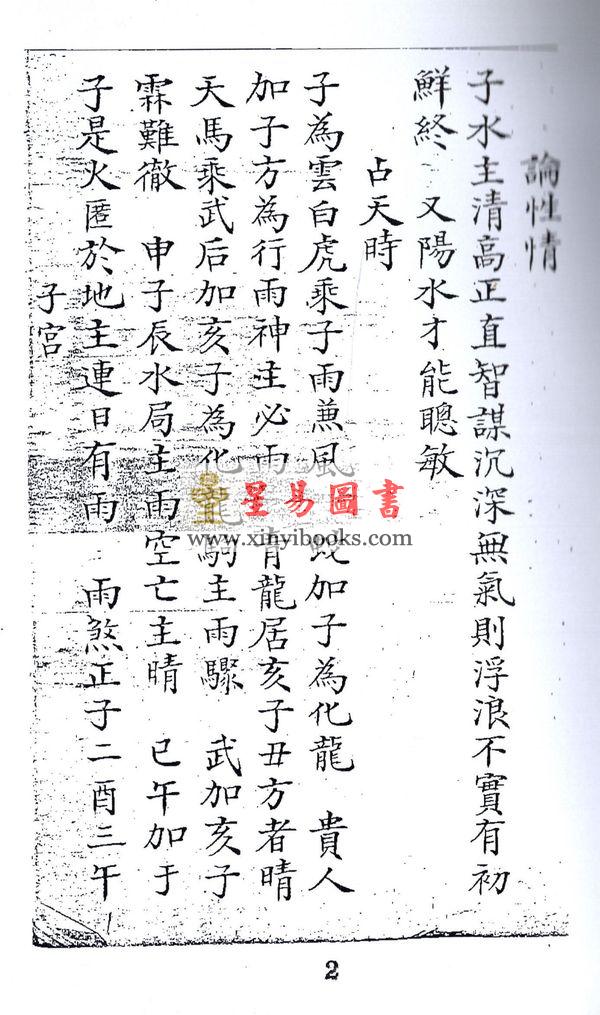 論性情
子水主清高正直智謀沉深無氣則浮浪不實有初
鮮終 又陽水才能聰敏
占天時
子為雲白虎乘子雨兼風 加子為化龍 貴人
加子方為行雨神主必雨 青龍居亥子丑方者晴
天馬乘武后加亥子為化龍駒主雨驟 武加亥子
霖難徹 申子辰水局主雨空亡主晴 巳午加于
子是火匿於地主連日有雨 雨煞正子二酉三午
子宮
2
星易圖書
www.xinyibooks.com